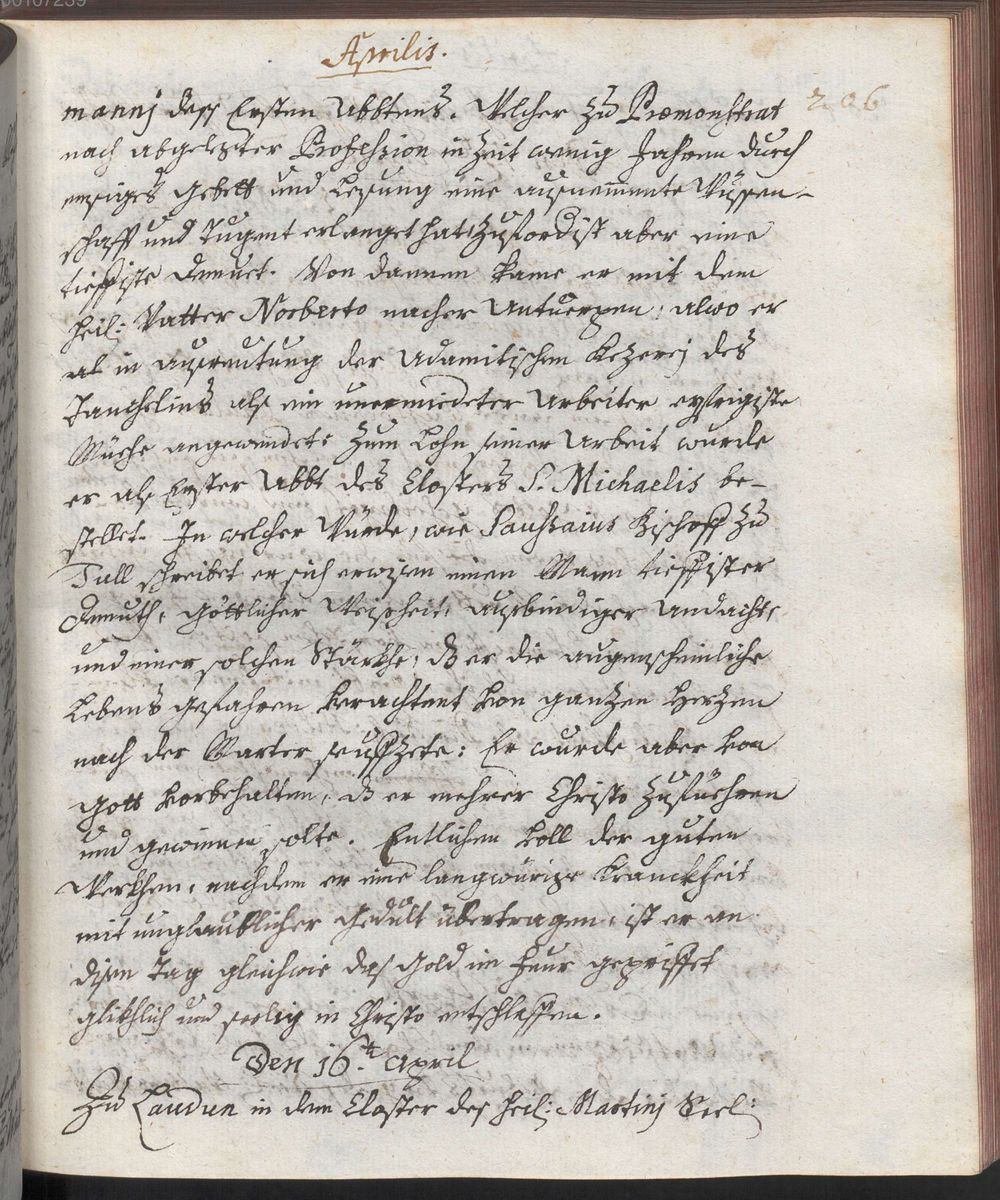 00107239
Aprilis.
206
mannj dess Ersten Abbtens. Welcher zu Præmonstrat
nach abgelegter Profession in Zeit wenig Jahren durch
emsiges Gebett und Lesung eine ausnemmente Wüssen-
schafft und Tugent erlanget hat, zuforderist aber eine
tieffiste Demuet. Von dannen kame er mit dem
heil: Vatter Norberto nacher Antuerpen, alwo er
al in ausreutung der Adamitischen Kezerej des
Tanchelins als ein unermiedeter Arbeiter eyfrigiste
Müche angewendet. Zum Lohn seiner Arbeit wurde
er als Erster Abbt des Closters S. Michaelis be-
stellet. In welcher Würde, wie Saussaius Bischoff zu
Tull schreibet er sich erwisen einen Mann tieffister
Demuth, Göttlicher Weisheit, ausbindiger Andacht,
und einer solchen Stärkhe, dz er die augenscheinliche
Lebens gefahren verachtent von gantzen Herzen
nach der Marter seuffzete: Er wurde aber von
Gott vorbehalten, dz er mehrer Christo zufüehren
und gewinnen solte. Entlichen voll der guten
Werkhen, nachdem er eine langwürige Kranckheit
mit unglaublicher Gedult übertragen, ist er an
disen Tag gleichwie das Gold im feur gepriffet
glikhlich und seelig in Christo entschlaffen.
Den 16.t April
Zu Laudun in dem Closter des heil: Martinj Seel: